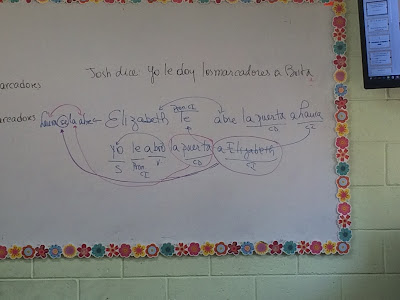 Josh dice Yo le doy los marcadores a Brita
arcadores
arcadores Laura se la abre Elizabeth le abre la puerta a Laura
Pron CI
CD CI
Yo le abro la puerta a Elizabeth
S Pron CI V CD CI